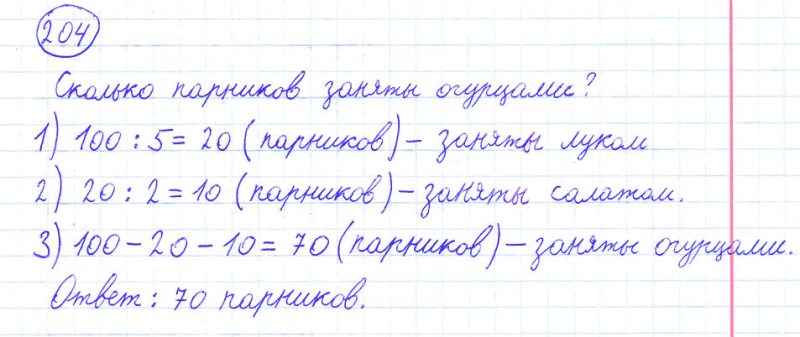 204
Сколько парников заняты огурцами?
1) 100 : 5 = 20 (парников) – заняты луком
2) 20 : 2 = 10 (парников) – заняты салатом.
3) 100 – 20 – 10 = 70 (парников) – заняты огурцами.
Ответ: 70 парников.